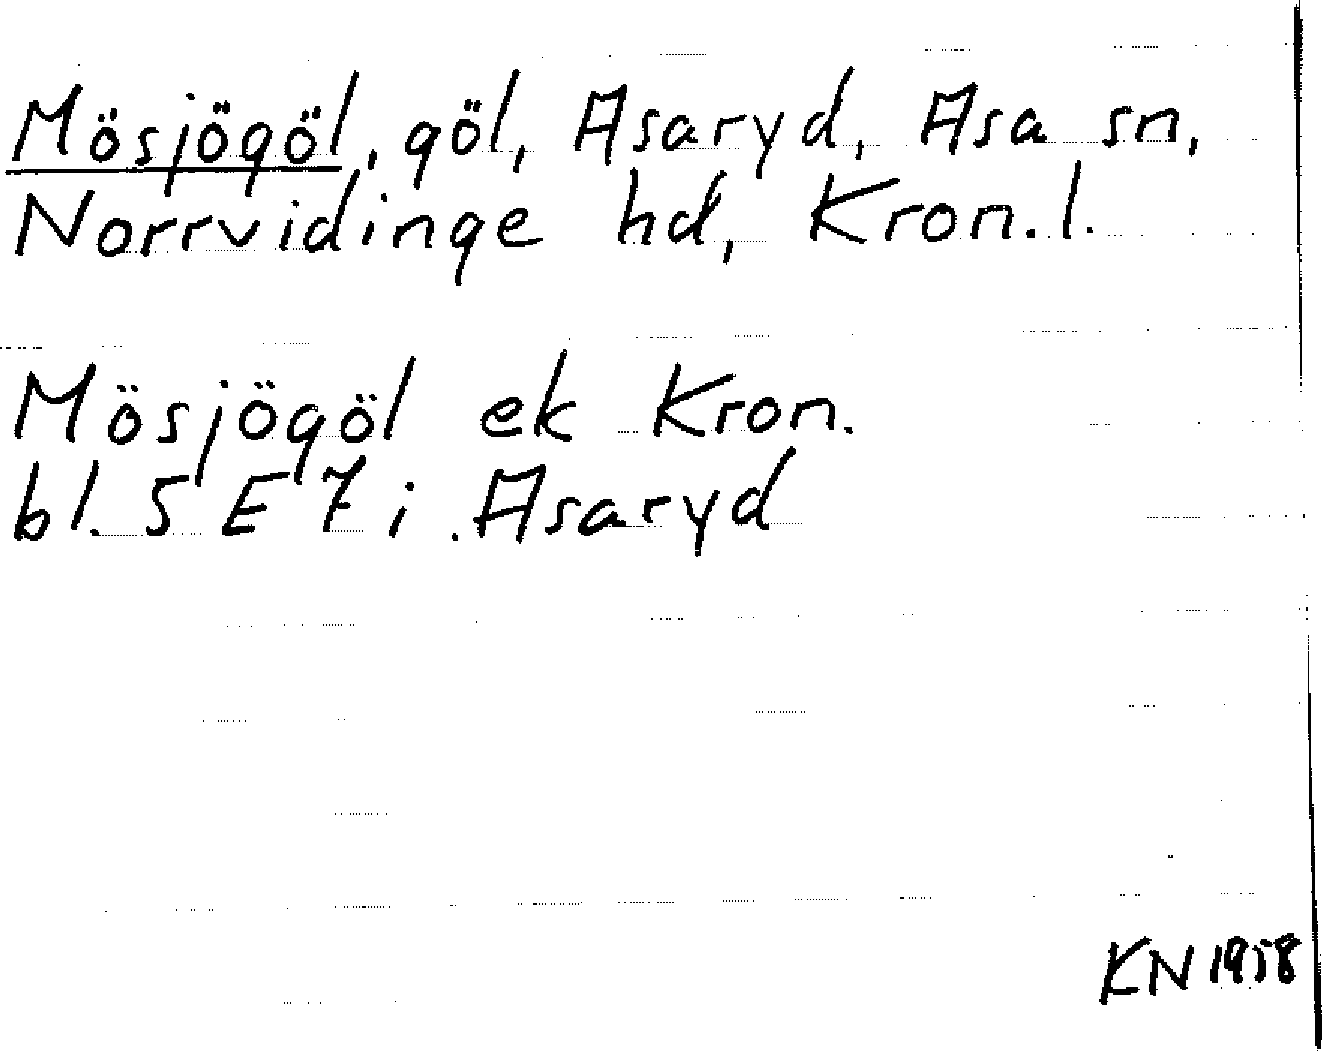 Mösjögöl, göl, Asaryd, Asa sn,
Norrvidinge hd, Kron.l.
Mösjögöl ek Kron.
bl. 5 E 7 i Asaryd
KN 1958